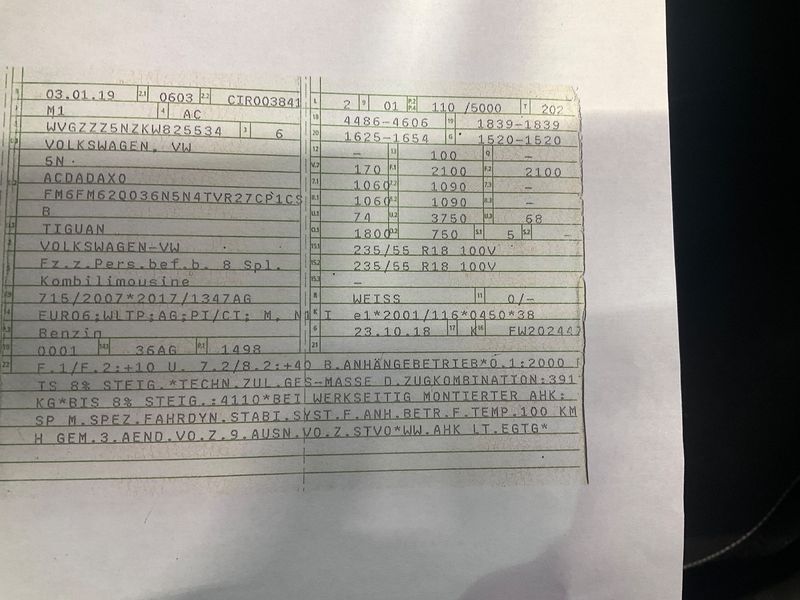 03.01.19 2.1 0603 2.2 CIR003841
M1 4 AC
WVGZZZ5NZKW825534 3 6
VOLKSWAGEN, VW
5N
ACDADAX0
FM6FM620036N5N4TVR27CP1CS
B
TIGUAN
VOLKSWAGEN-VW
Fz.z.Pers.bef.b. 8 Spl.
Kombilimousine
715/2007*2017/1347AG
EURO6;WLTP;AG;PI/CI; M, N1 I
Benzin
0001 36AG 1498
L 2 9 01 P.2 P.4 110 /5000 T 202
18 4486-4606 19 1839-1839
20 1625-1654 G 1520-1520
12 – 13 100 Q –
V.7 170 F.1 2100 F.2 2100
7.1 1060 7.2 1090 7.3 –
8.1 1060 8.2 1090 8.3 –
U.1 74 U.2 3750 U.3 68
O.1 1800 O.2 750 S.1 5 S.2 –
15.1 235/55 R18 100V
15.2 235/55 R18 100V
15.3 –
R WEISS 11 0/–
K e1*2001/116*0450*38
6 23.10.18 17 K 16 FW202447
21
22 F.1/F.2:+10 U. 7.2/8.2:+40 B.ANHÄNGEBETRIEB*O.1:2000
TS 8% STEIG.*TECHN.ZUL.GES-MASSE D.ZUGKOMBINATION:391
KG*BIS 8% STEIG.:4110*BEI WERKSEITIG MONTIERTER AHK:
SP M.SPEZ.FAHRDYN.STABI.SYST.F.ANH.BETR.F.TEMP.100 KM
H GEM.3.AEND.VO.Z.9.AUSN.VO.Z.STVO*WW.AHK LT.EGTG*